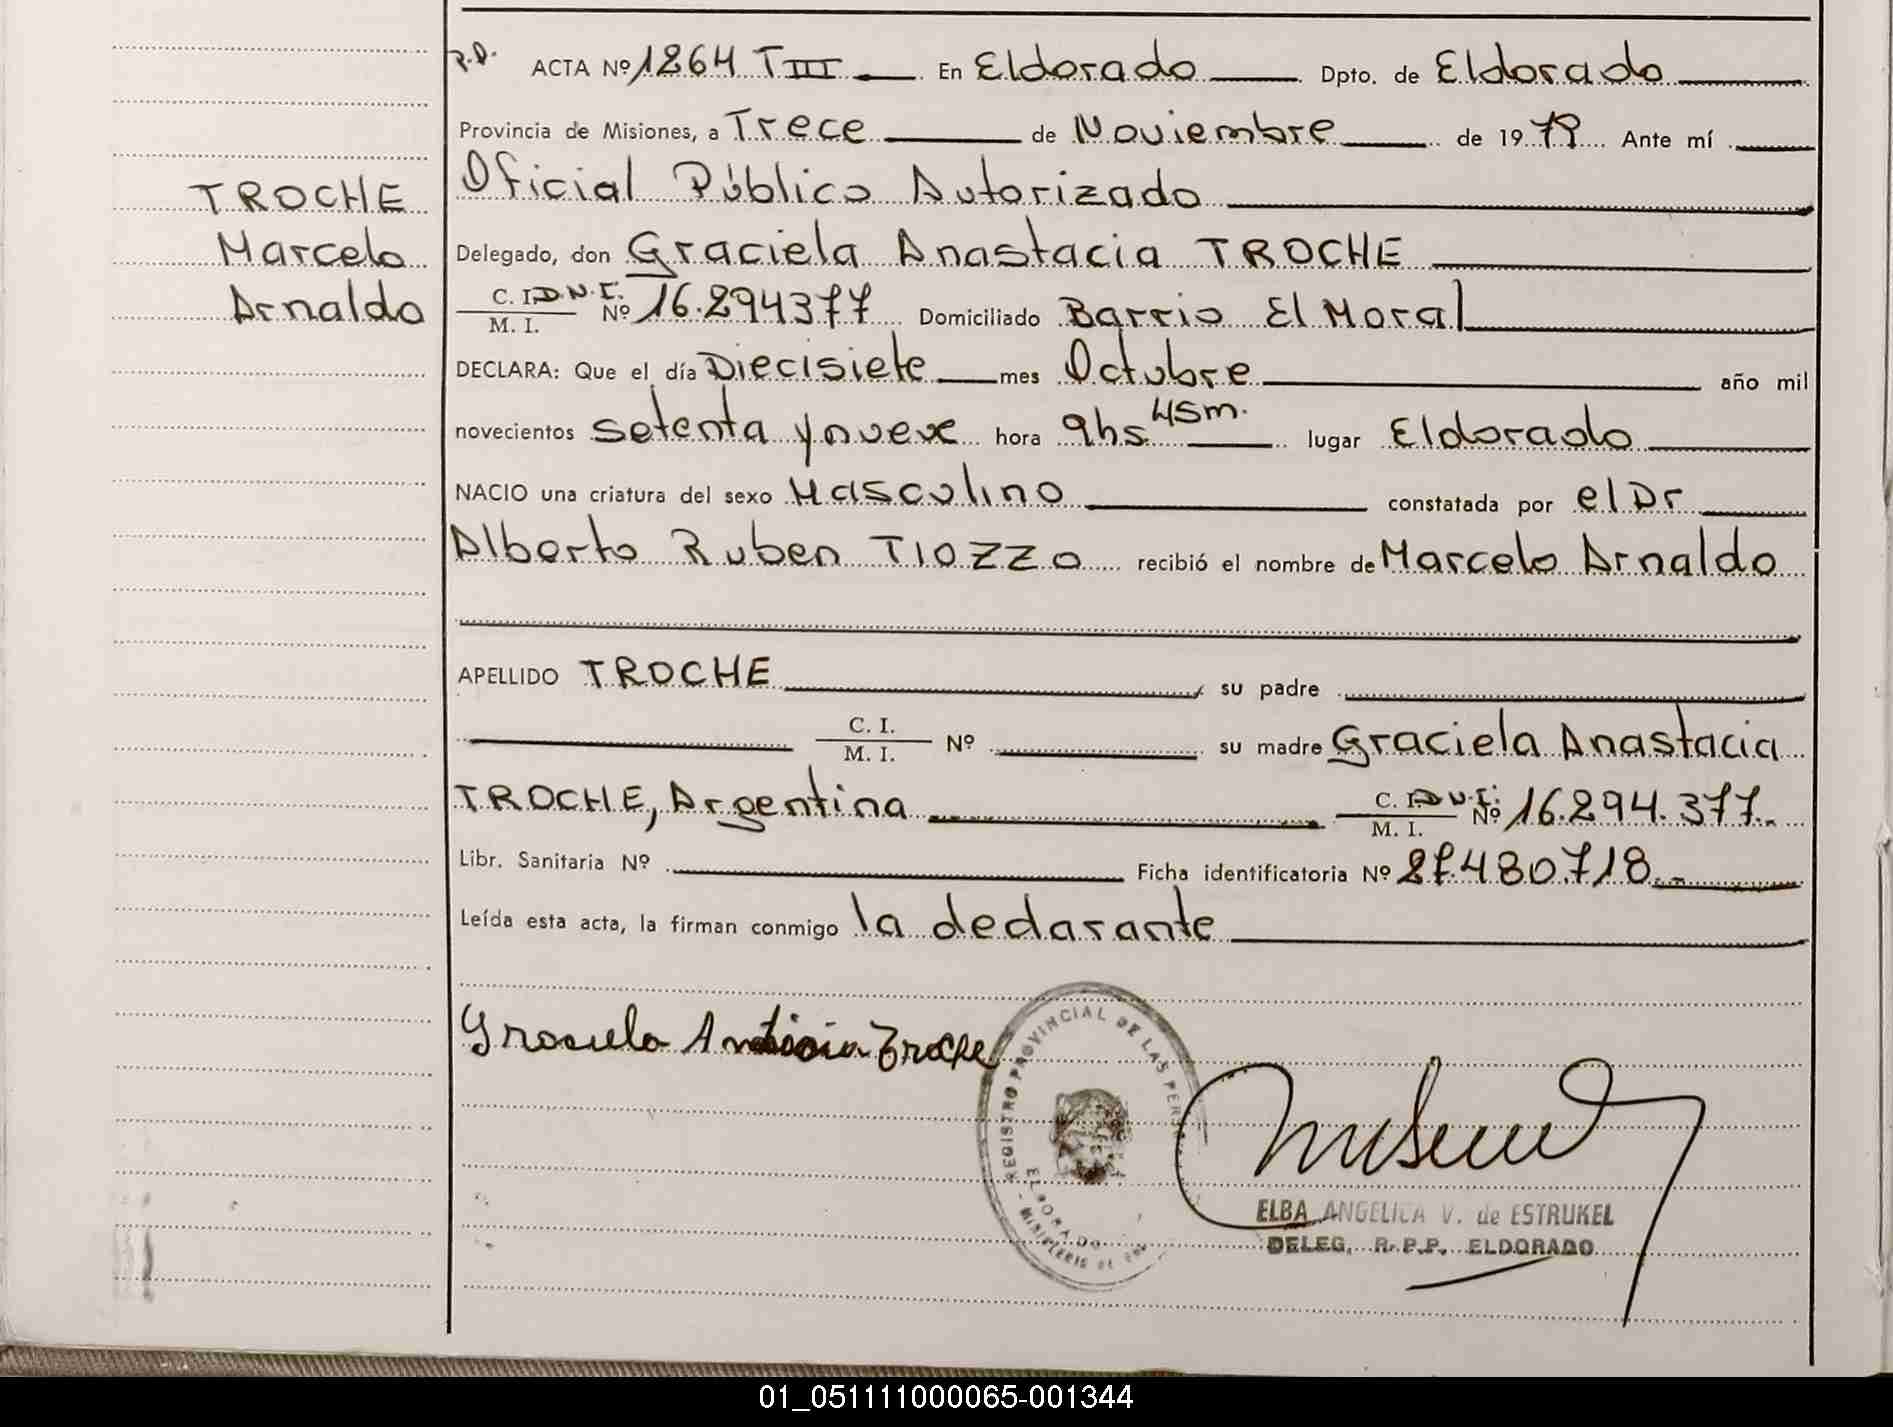 R.D. ACTA Nº 1264 T III En Eldorado Dpto. de Eldorado
Provincia de Misiones, a Trece de Noviembre de 1979 Ante mí
Oficial Público Autorizado
TROCHE
Marcelo
Arnaldo
Delegado, don Graciela Anastacia TROCHE
C. I. D.N.I.
M. I. Nº 16.294377 Domiciliado Barrio El Moral
DECLARA: Que el día Diecisiete mes Octubre año mil
novecientos setenta y nueve hora 9hs. 45m. lugar Eldorado
NACIO una criatura del sexo Masculino constatada por el Dr
Alberto Ruben TIOZZO recibió el nombre de Marcelo Arnaldo
APELLIDO TROCHE su padre
C. I.
M. I. Nº su madre Graciela Anastacia
TROCHE, Argentina C. I. D.N.I. M. I. Nº 16.294.377.-
Libr. Sanitaria Nº Ficha identificatoria Nº 27.480.718.-
Leída esta acta, la firman conmigo la declarante
Graciela Anastacia Troche
REGISTRO PROVINCIAL DE LAS PERS
ELDORADO
MINISTERIO DE
ELBA ANGELICA V. de ESTRUKEL
DELEG. R.P.P. ELDORADO
01_051111000065-001344